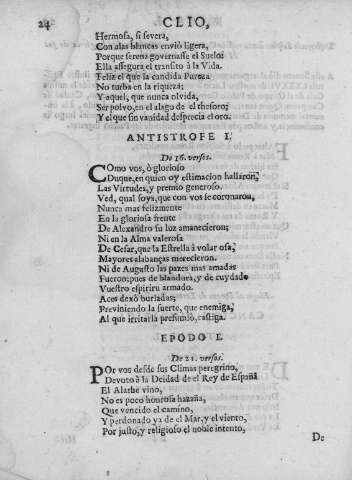 24 CLIO,
Hermosa, si severa,
Con alas blancas enviò ligera,
Porque serena governasse el Suelo:
Ella assegura el transito à la Vida.
Feliz el que la candida Pureza
No turba en la riqueza;
Y aquel, que nunca olvida,
Ser polvo, en el alago de el thesoro;
Y el que sin vanidad desprecia el oro.
ANTISTROFE I.
De 16. versos.
COmo vos, ò glorioso
Duque, en quien oy estimacion hallaron,
Las Virtudes, y premio generoso.
Ved, qual soys, que con vos se coronaron,
Nunca mas felizmente
En la gloriosa frente
De Alexandro su luz amanecieron;
Ni en la Alma valerosa
De Cesar, que la Estrella à volar osa,
Mayores alabanças merecieron.
Ni de Augusto las pazes mas amadas
Fueron; pues de blandura, y de cuydado
Vuestro espiriru armado.
Aces dexò burladas;
Previniendo la suerte, que enemiga,
Al que irritarla presumiò, castiga.
EPODO I.
De 21. versos.
POr vos desde sus Climas peregrino,
Devoto à la Deidad de el Rey de España
El Alarbe vino,
No es poco honrosa hazaña,
Que vencido el camino,
Y perdonado ya de el Mar, y el viento,
Por justo, y religioso el noble intento,
De